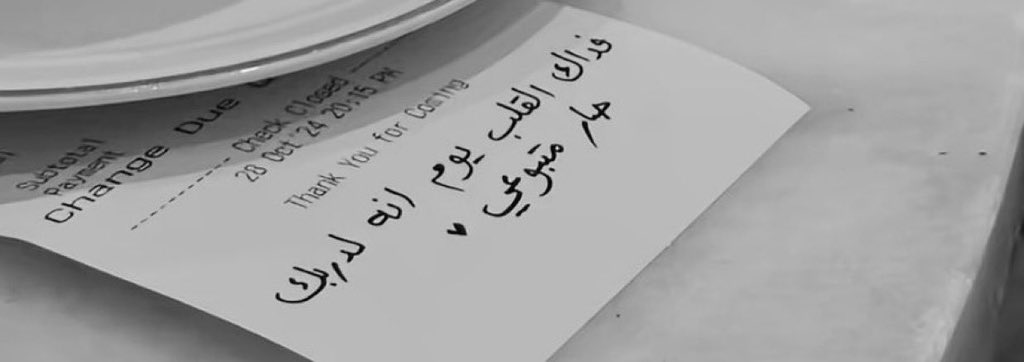 Subtotal
Payment
Change Due
---------- Check Closed ----
28 Oct '24 20:15 PM
Thank You for Coming
فداك القلب يوم انه لدربك
صار متبوعي ♥